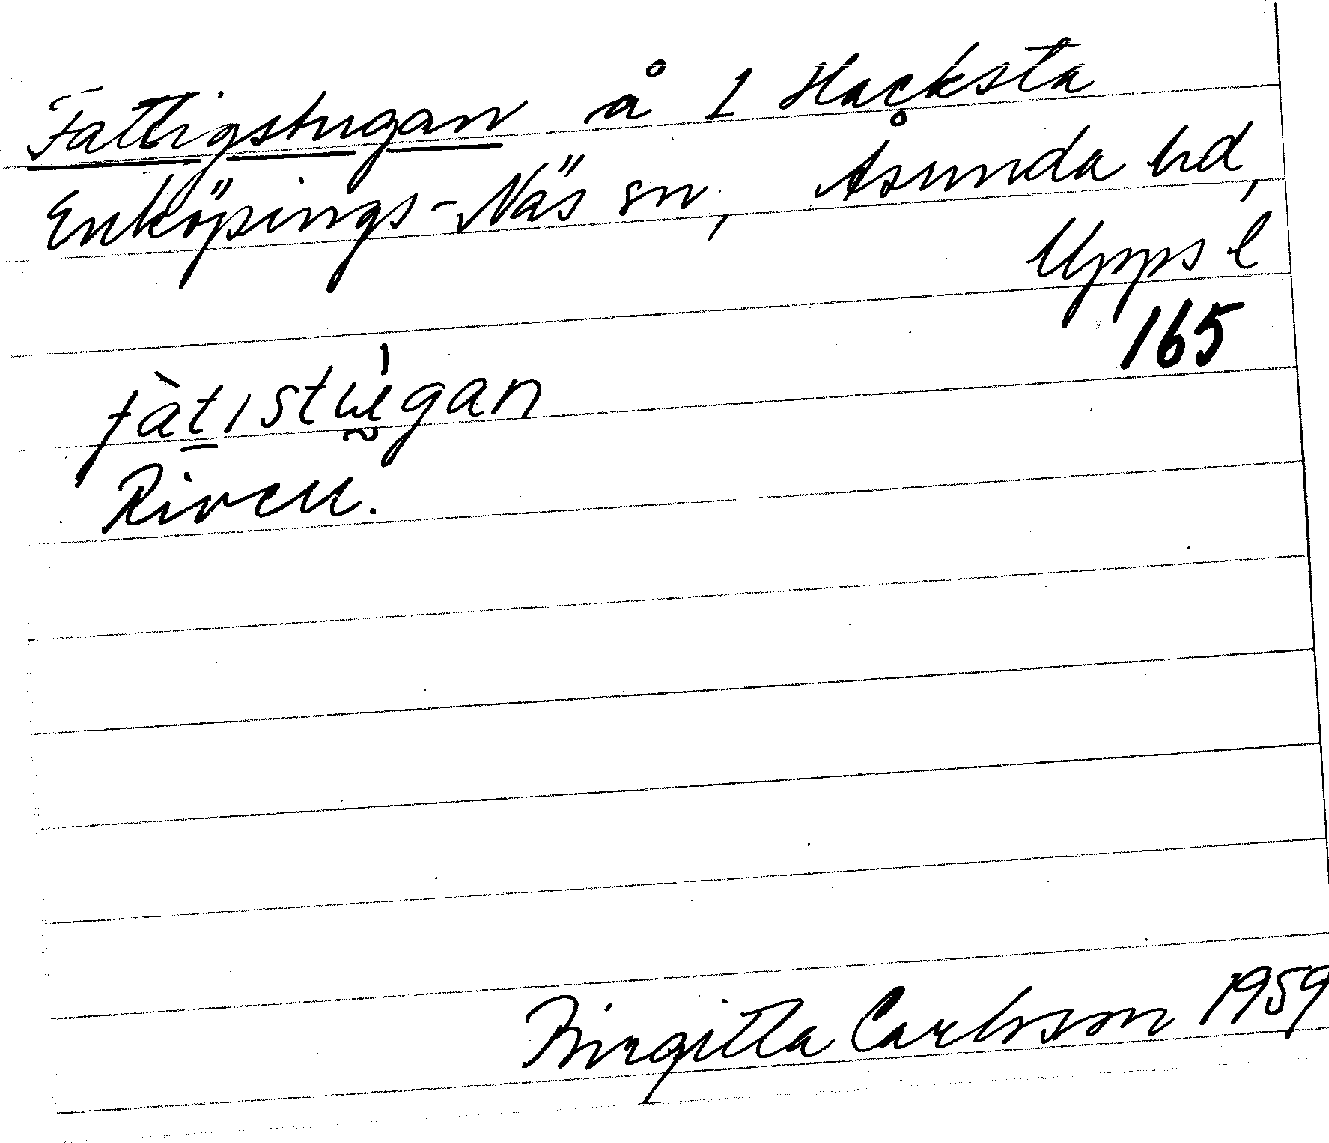 Fattigstugan å 1 Hacksta
Enköpings-Näs sn, Åsunda hd,
Upps l
165
fàt̲ıstṵ̍gan
Riven.
Birgitta Carlsson 1959